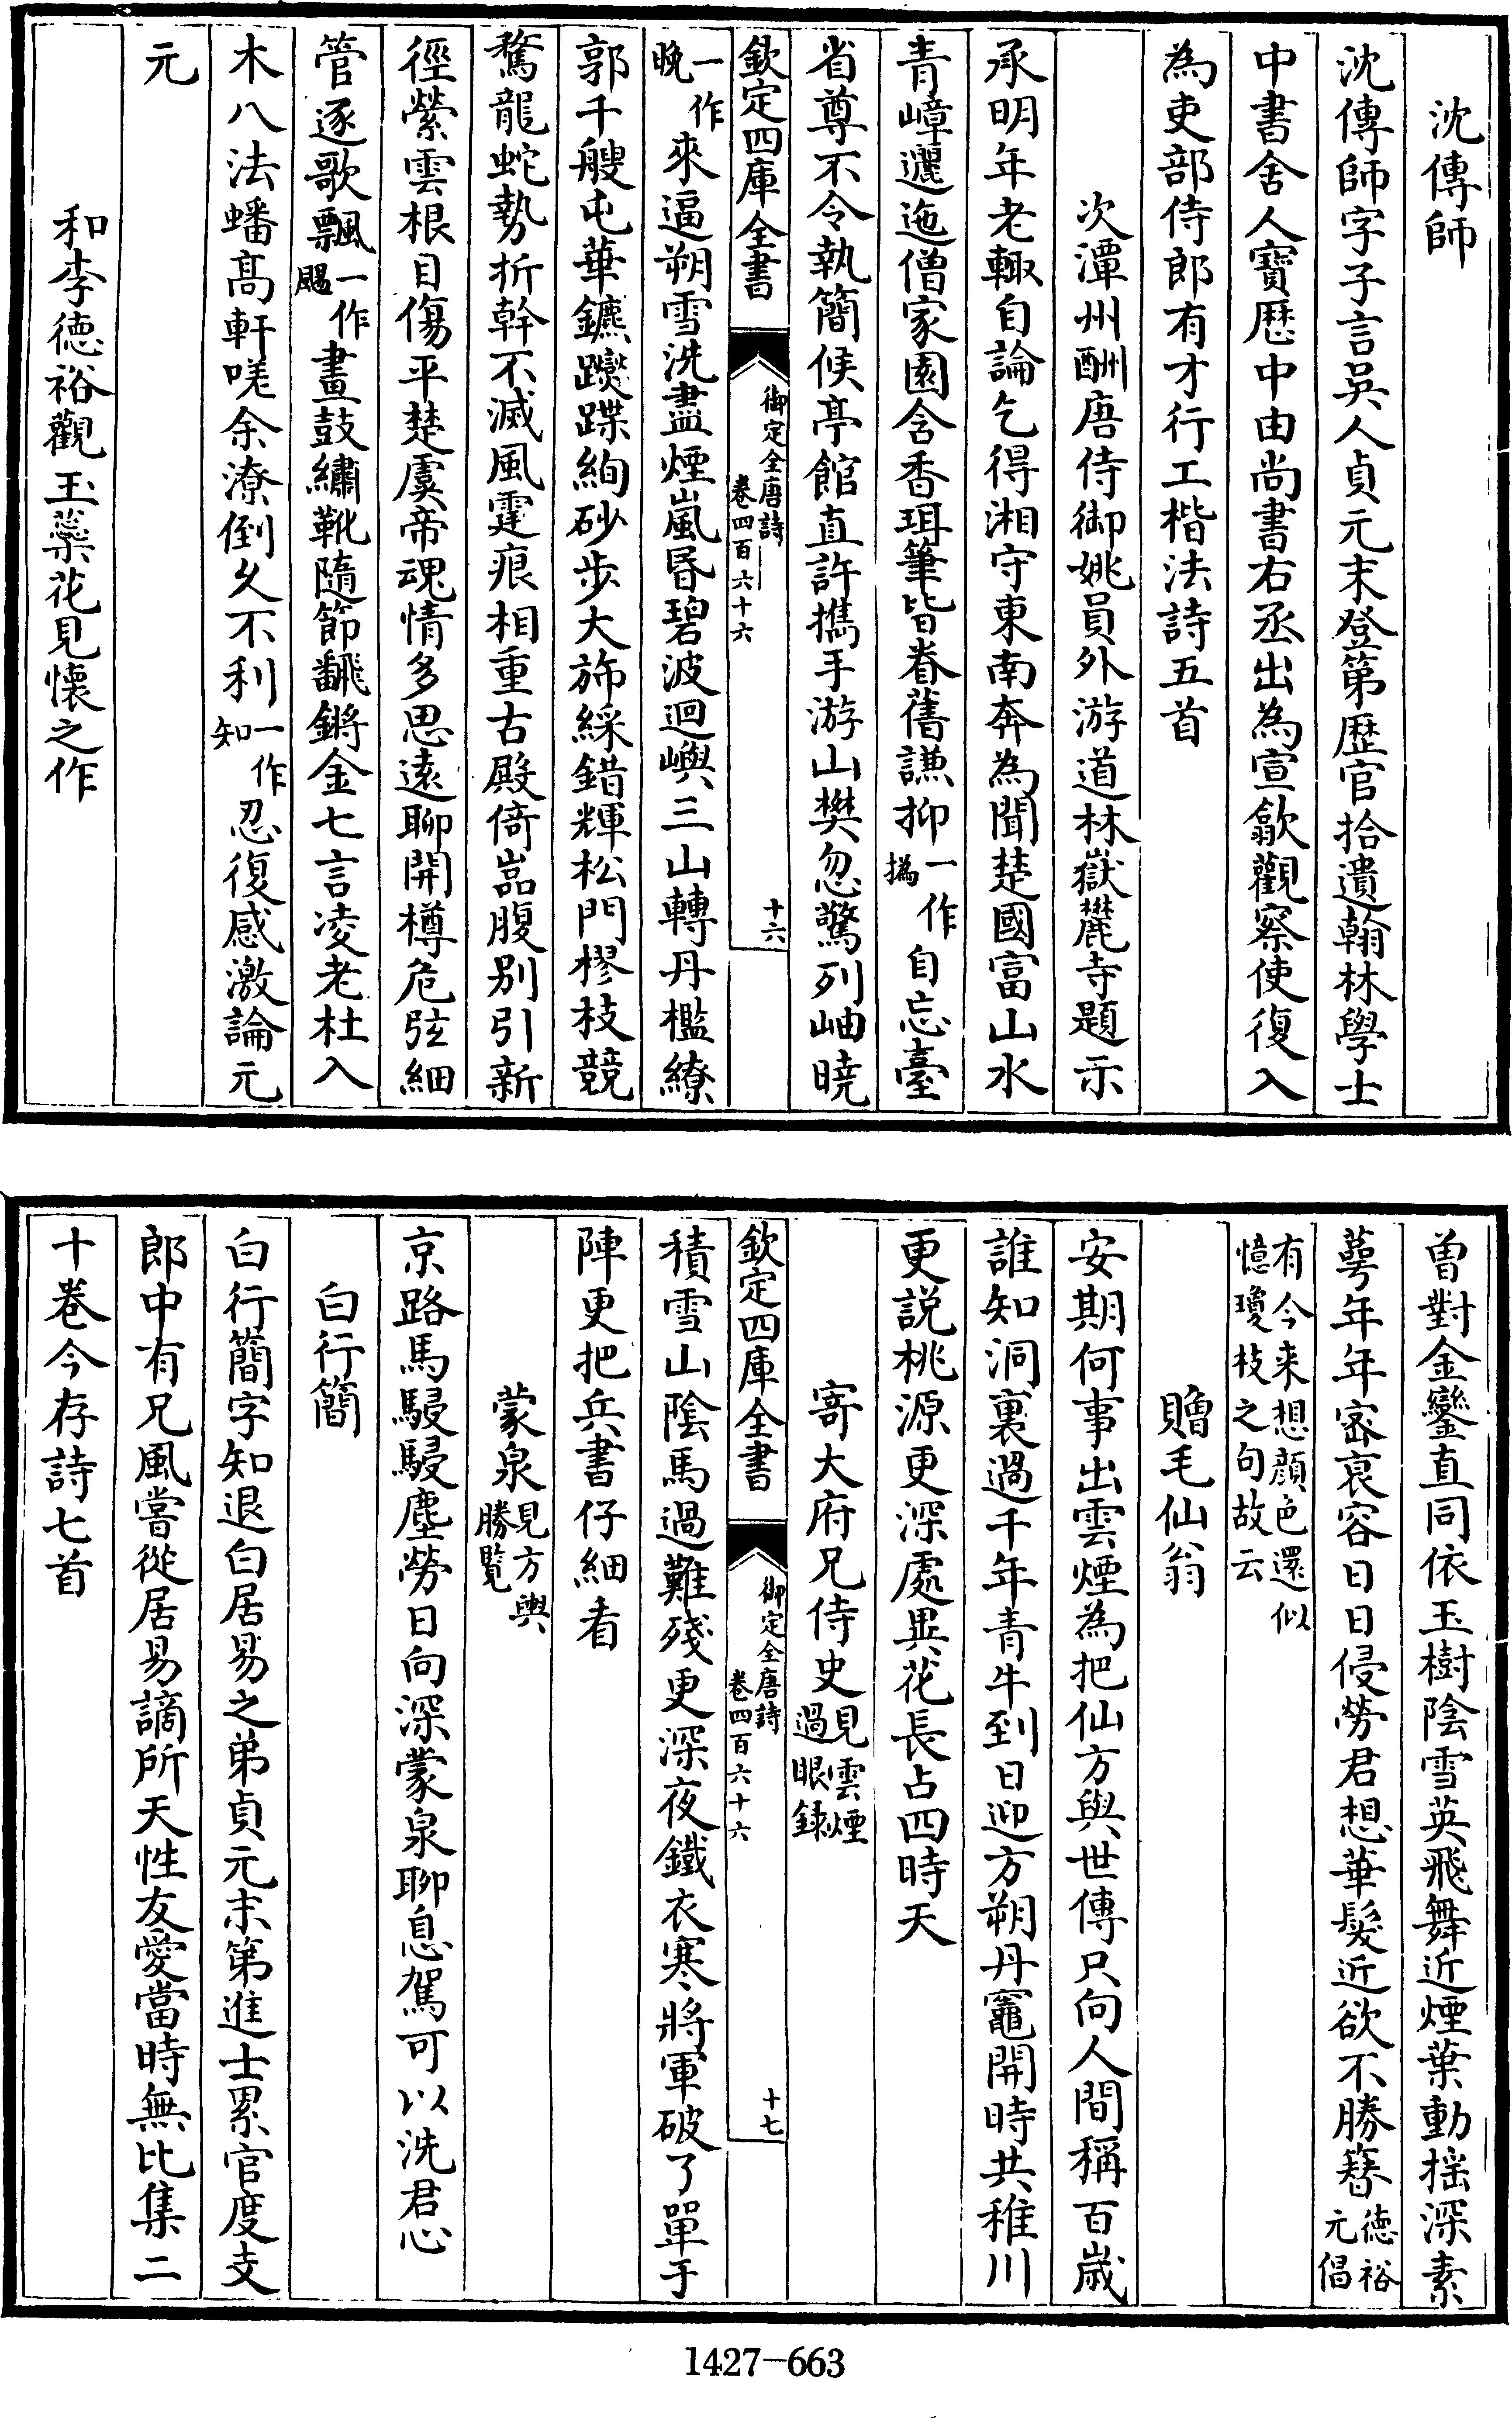 沈傳師
沈傳師字子言吳人貞元末登第歴官拾遺翰林學士
中書舍人寳歴中由尚書右丞出為宣歙觀察使復入
為吏部侍郎有才行工楷法詩五首
次潭州酬唐侍御姚員外游道林嶽麓寺題示
承明年老輙自論乞得湘守東南奔為聞楚國富山水
青嶂邐迤僧家園含香珥筆皆眷舊謙抑一作撝自忘臺
省尊不令執簡候亭館直許攜手游山樊忽驚列岫曉
欽定四庫全書 御定全唐詩 卷四百六十六 十六
一作晚來逼朔雪洗盡煙嵐昏碧波迴嶼三山轉丹檻繚
郭千艘屯華鑣躞蹀絢砂步大斾綵錯輝松門樛枝競
騖龍蛇勢折幹不滅風霆痕相重古殿倚嵓腹别引新
徑縈雲根目傷平楚虞帝魂情多思遠聊開樽危弦細
管逐歌飄一作颺畫鼓繡靴隨節翻鏘金七言凌老杜入
木八法蟠高軒嗟余潦倒久不利一作知忍復感激論元
元
和李德裕觀玉蘂花見懷之作
曽對金鑾直同依玉樹陰雪英飛舞近煙葉動揺深素
萼年年密衰容日日侵勞君想華髮近欲不勝簪德裕元倡
有今来想顔色還似憶瓊枝之句故云
贈毛仙翁
安期何事出雲煙為把仙方與世傳只向人間稱百歲
誰知洞裏過千年青牛到日迎方朔丹竈開時共稚川
更説桃源更深處異花長占四時天
寄大府兄侍史見雲煙過眼錄
欽定四庫全書 御定全唐詩 卷四百六十六 十七
積雪山陰馬過難殘更深夜鐵衣寒將軍破了單于
陣更把兵書仔細看
蒙泉見方輿勝覽
京路馬駸駸塵勞日向深蒙泉聊息駕可以洗君心
白行簡
白行簡字知退白居易之弟貞元末第進士累官度支
郎中有兄風嘗從居易謫所天性友愛當時無比集二
十卷今存詩七首
1427-663